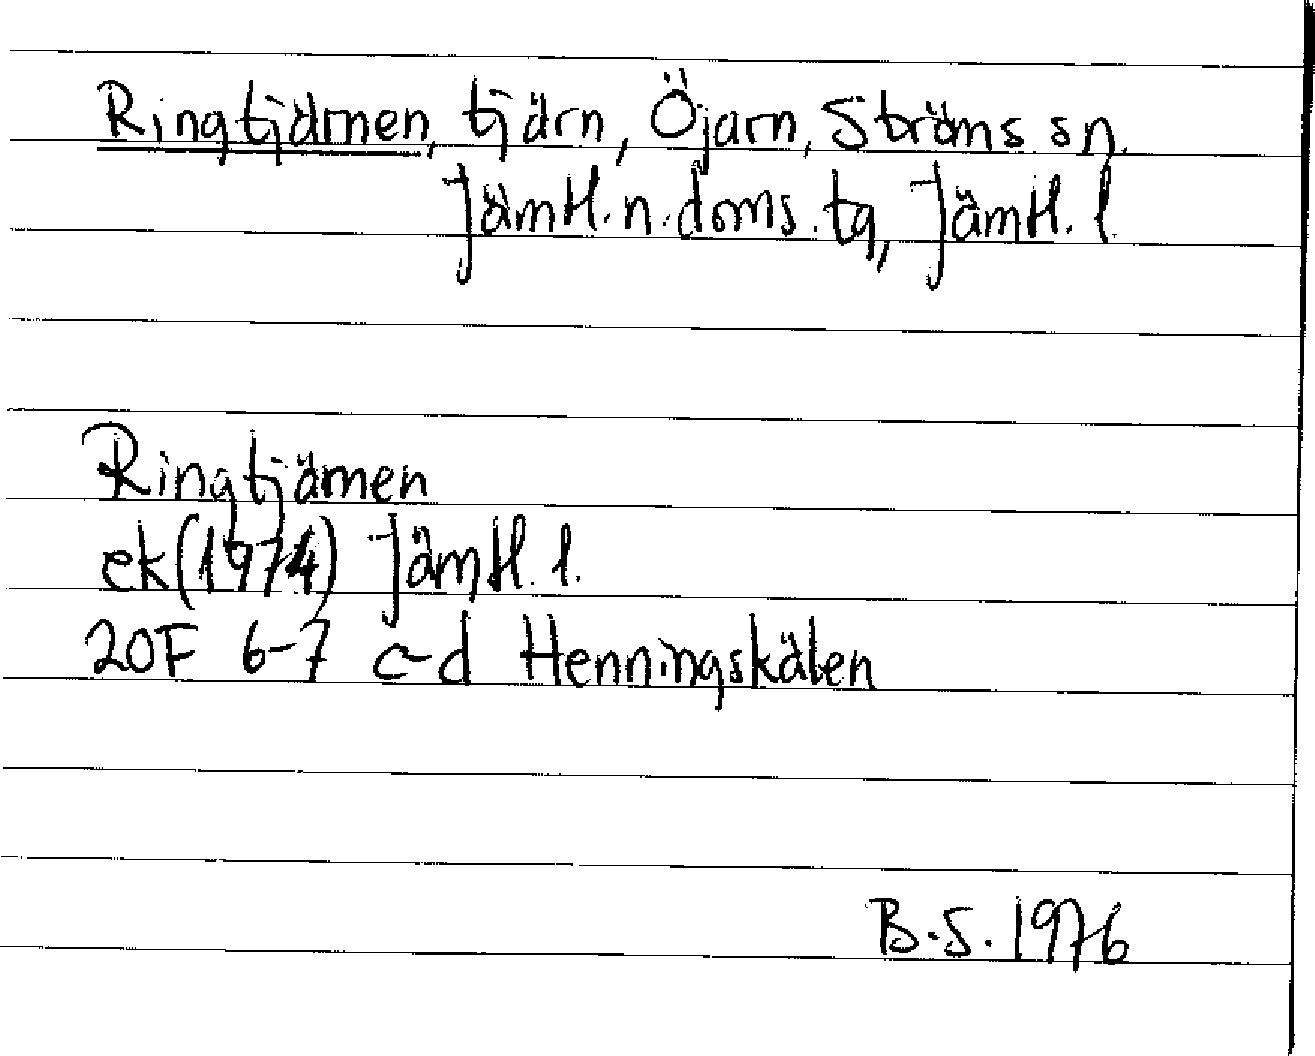 Ringtjärnen, tjärn, Öjarn, Ströms sn.
Jämtl. n. doms. tq, Jämtl. l.
Ringtjärnen
ek (1974) Jämtl. l.
20F 6-7 c-d Henningskälen
B.S. 1976